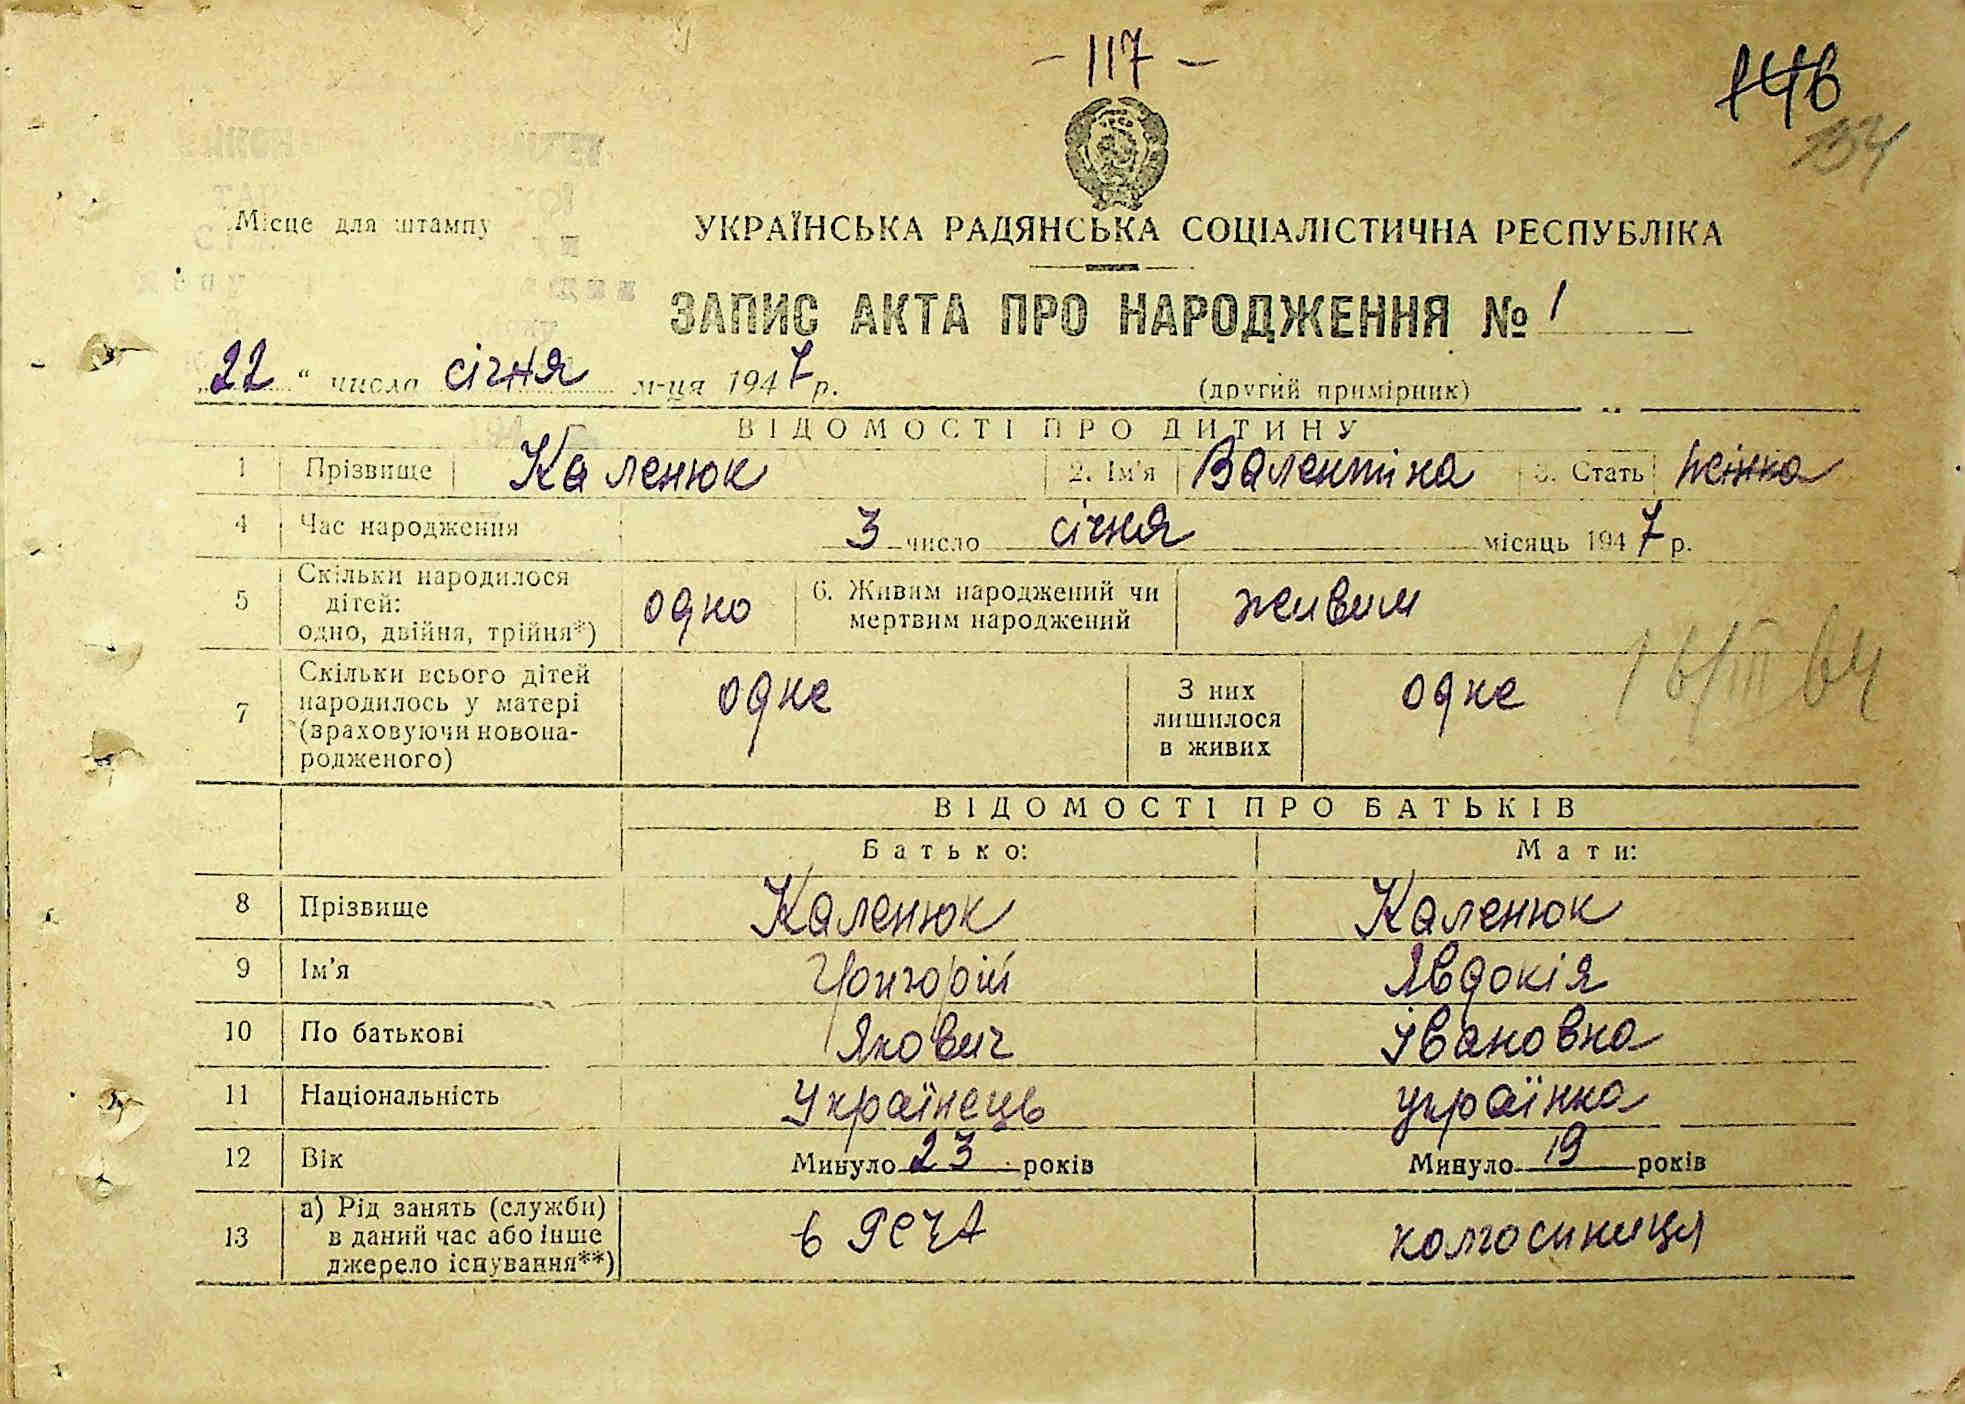 - 117 -
146
134
Місце для штампу
УКРАЇНСЬКА РАДЯНСЬКА СОЦІАЛІСТИЧНА РЕСПУБЛІКА
ЗАПИС АКТА ПРО НАРОДЖЕННЯ № 1
„22“ числа січня м-ця 1947 р. (другий примірник)
ВІДОМОСТІ ПРО ДИТИНУ
1 Прізвище Каленюк 2. Ім'я Валентіна 3. Стать жінка
4 Час народження 3 число січня місяць 1947 р.
5 Скільки народилося дітей: одно, двійня, трійня*) одно 6. Живим народжений чи мертвим народжений живим
7 Скільки всього дітей народилось у матері (враховуючи новонародженого) одне З них лишилося в живих одне
16/III 64
ВІДОМОСТІ ПРО БАТЬКІВ
Батько: Мати:
8 Прізвище Каленюк Каленюк
9 Ім'я Григорій Явдокія
10 По батькові Якович Івановна
11 Національність Українець українка
12 Вік Минуло 23 років Минуло 19 років
13 а) Рід занять (служби) в даний час або інше джерело існування**) в колгоспниця